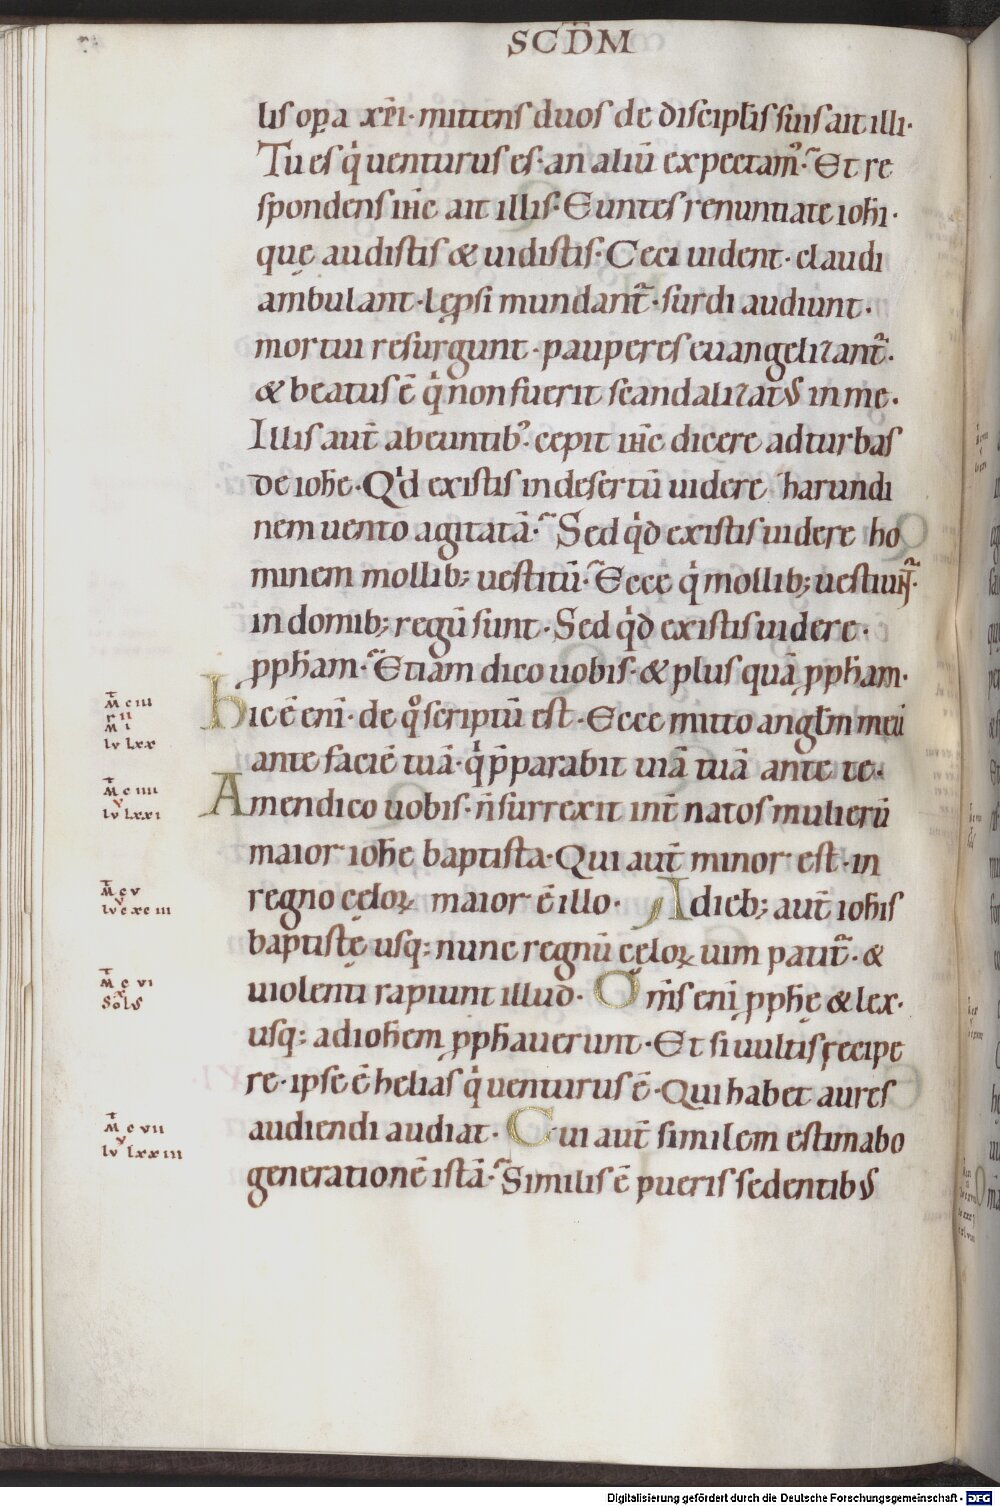 SCD̄M
lis opa xp̄i· mittens duos de discipl̄is suis ait illi·
Tu es q̇ uenturus es· an aliū expectam᾽· Et re
spondens ih̄c ait illis· Euntes renuntiate ioh̄i·
que audistis & uidistis· Ceci uident· claudi
ambulant· lepsi mundant̄· surdi audiunt·
mortui resurgunt· pauperes euangelizant̄·
& beatus ē q̇ non fuerit scandalizatus in me·
Illis aut̄ abeuntib᾽· cepit ih̄c dicere ad turbas
de ioh̄e· Qḋ existis in desertū uidere harundi
nem uento agitatā· Sed qḋ existis uidere ho
minem mollib; uestitū· Ecce q̇ mollib; uestiunt̄·
in domib; regū sunt· Sed qḋ existis uidere·
pph̄am· Etiam dico uobis· & plus quā pph̄am·
hic ē eni· de q̊ scriptū est· Ecce mitto angl̄m meū
ante faciē tuā· q̇ p̄parabit uiā tuā ante te·
Amen dico uobis· n̄ surrexit int̄ natos mulierū
maior ioh̄e baptista· Qui aut̄ minor est· in
regno celoꝝ maior ē illo· A dieb; aut̄ ioh̄is
baptiste usq; nunc regnū celoꝝ uim patit̄· &
uiolenti rapiunt illud· Om̄s eni pph̄e & lex·
usq; ad ioh̄em pph̄auerunt· Et si uultis recipe
re· ipse ē helias q̇ uenturus ē· Qui habet aures
audiendi audiat· Cui aut̄ similem estimabo
generationē istā· Similis ē pueris sedentibus
M̄ c iii
r ii
M i
lv lxx
M̄ c iiii
v
lv lxxi
M̄ c v
lv cxc iii
M̄ c vi
x
Sol᾽
M̄ c vii
v
lv lxxiii
Digitalisierung gefördert durch die Deutsche Forschungsgemeinschaft - DFG